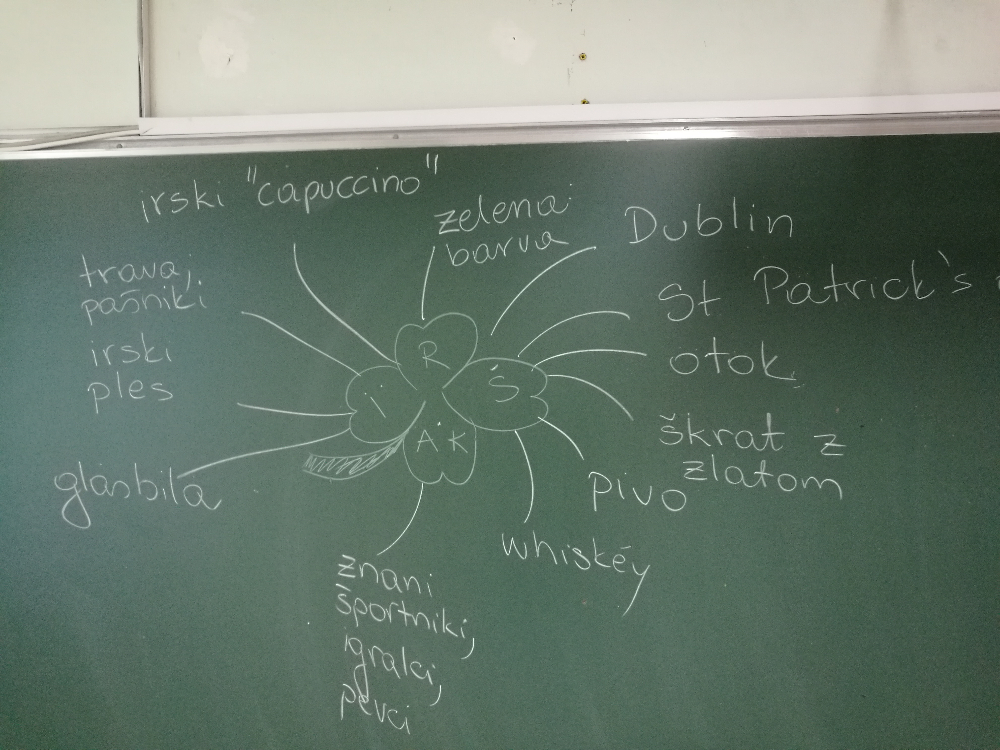 irski "capuccino"
zelena
barva
Dublin
St Patrick's
otok
škrat z
zlatom
pivo
whiskey
znani
športniki,
igralci,
pevci
glasbila
irski
ples
trava,
pašniki
I R Š
A K